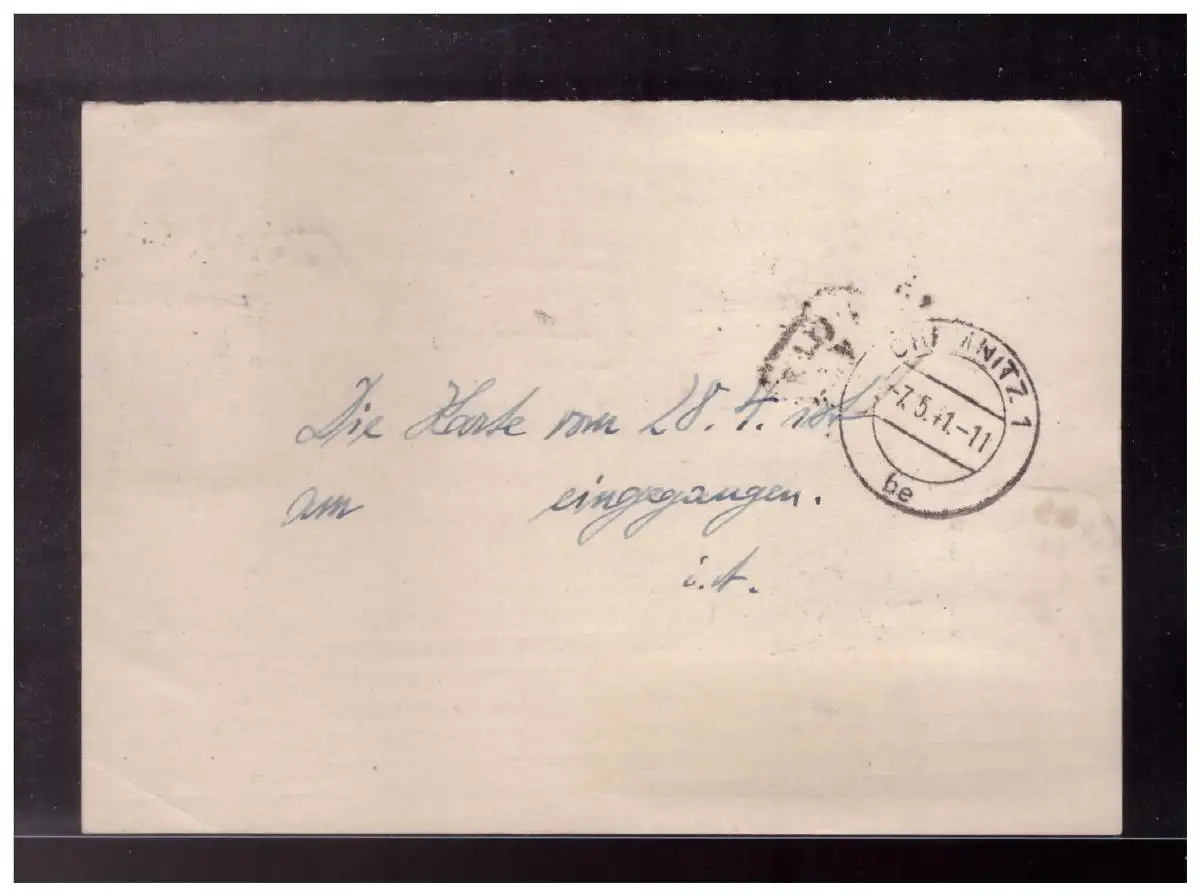 CHEMNITZ 1
-7.5.41.-11
be
Die Karte vom 28.4. ist
am eingegangen.
i.A.